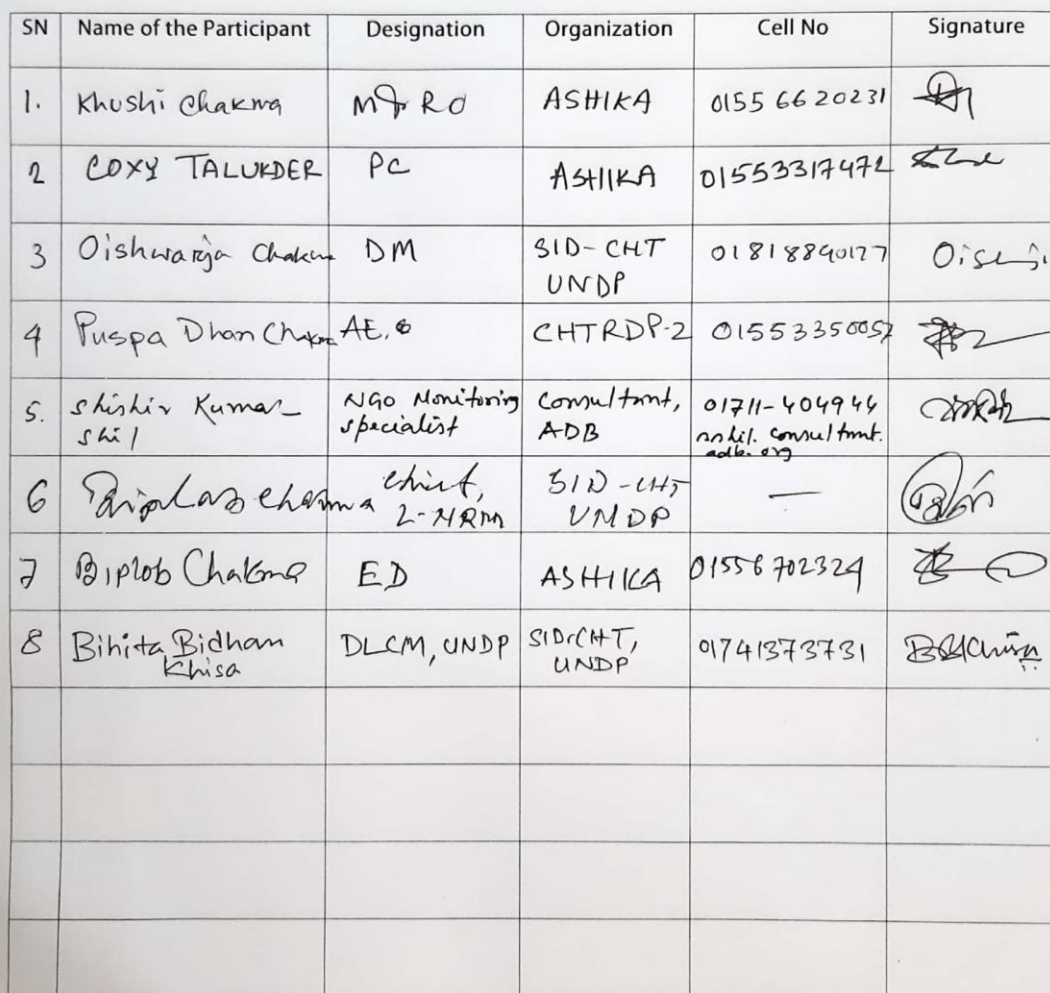 SN Name of the Participant Designation Organization Cell No Signature
1. Khushi Chakma M&RO ASHIKA 01556620231
2 COXY TALUKDER PC ASHIKA 01553317472
3 Oishwarja Chakma DM SID-CHT
UNDP 01818890127
4 Puspa Dhan Chakma AE. CHTRDP-2 01553350057
5. Shishir Kumar
Shil NGO Monitoring
specialist Consultant,
ADB 01711-404944
consultant.
adb.org
6 Chakma Chief,
SID-CHT
UNDP —
7 Biplob Chakma ED ASHIKA 01556702324
8 Bihita Bidhan
Khisa DLCM, UNDP SID-CHT,
UNDP 01741373731